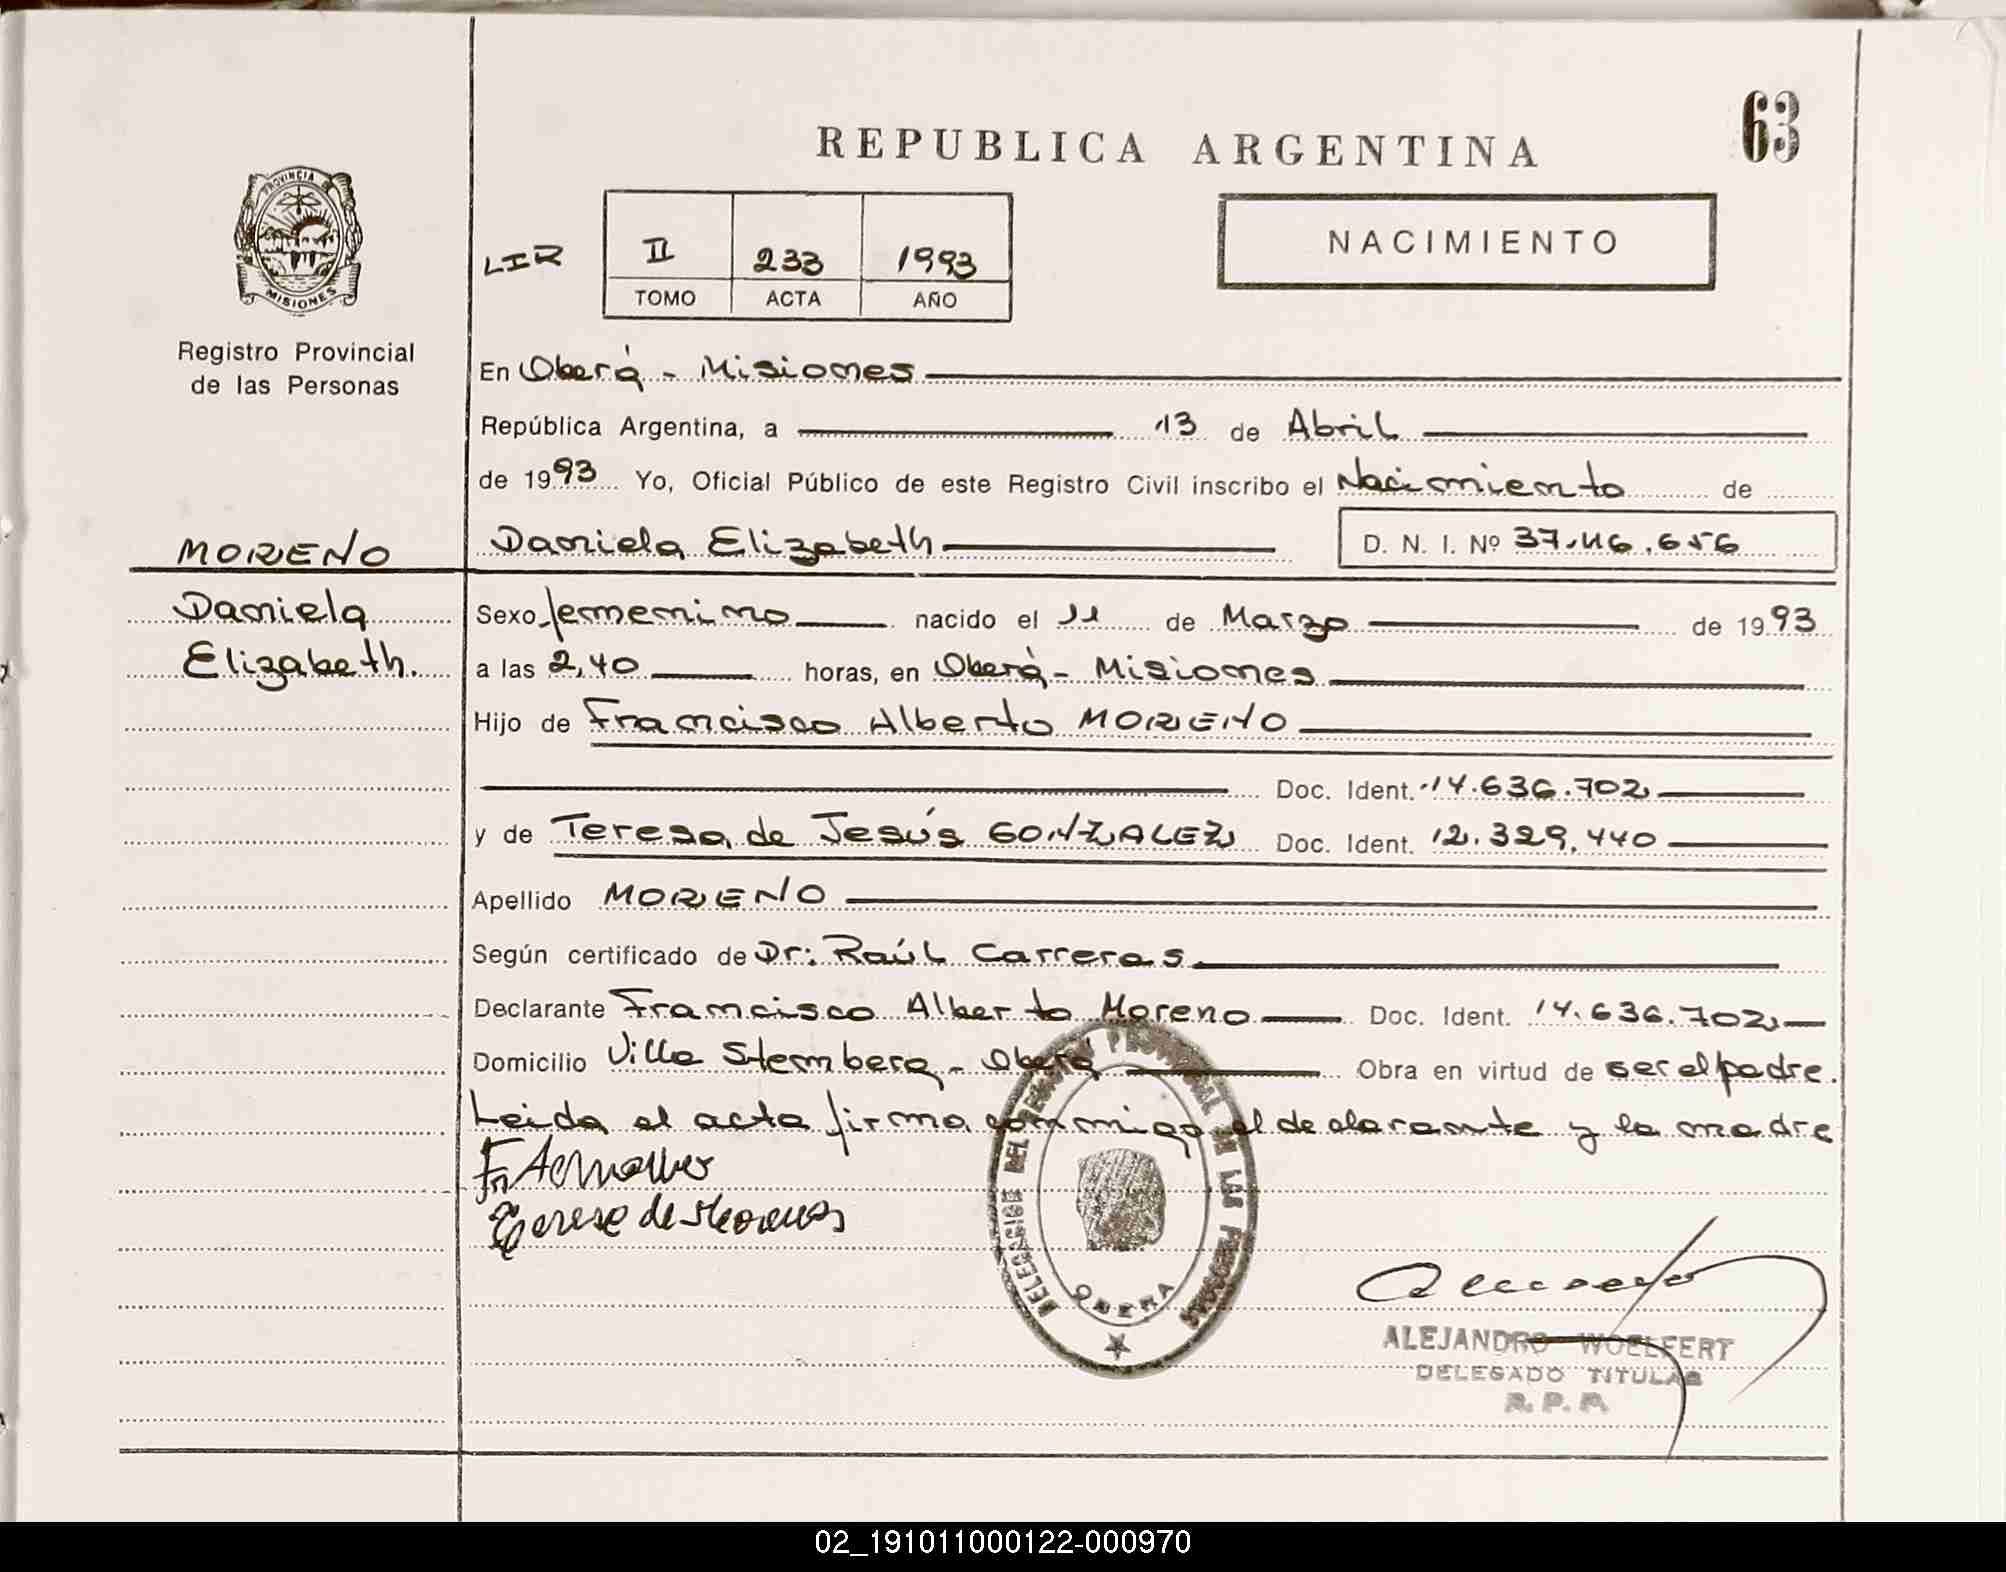 63
REPUBLICA ARGENTINA
PROVINCIA DE
MISIONES
Registro Provincial
de las Personas
LIR
II 233 1993
TOMO ACTA AÑO
NACIMIENTO
En Oberá - Misiones
República Argentina, a 13 de Abril
de 1993 Yo, Oficial Público de este Registro Civil inscribo el Nacimiento de
MORENO Daniela Elizabeth D. N. I. Nº 37.116.656
Daniela Sexo femenino nacido el 11 de Marzo de 1993
Elizabeth. a las 2,40 horas, en Oberá - Misiones
Hijo de Francisco Alberto MORENO
Doc. Ident. 14.636.702
y de Teresa de Jesús GONZALEZ Doc. Ident. 12.329.440
Apellido MORENO
Según certificado de Dr: Raúl Carreras
Declarante Francisco Alberto Moreno Doc. Ident. 14.636.702
Domicilio Villa Stemberg - Oberá Obra en virtud de ser el padre.
Leida el acta firma conmigo el declarante y la madre
Teresa de Moreno
DELEGACION DEL REGISTRO PROVINCIAL DE LAS PERSONAS
OBERA
ALEJANDRO WOELFERT
DELEGADO TITULAR
R. P. P.
02_191011000122-000970